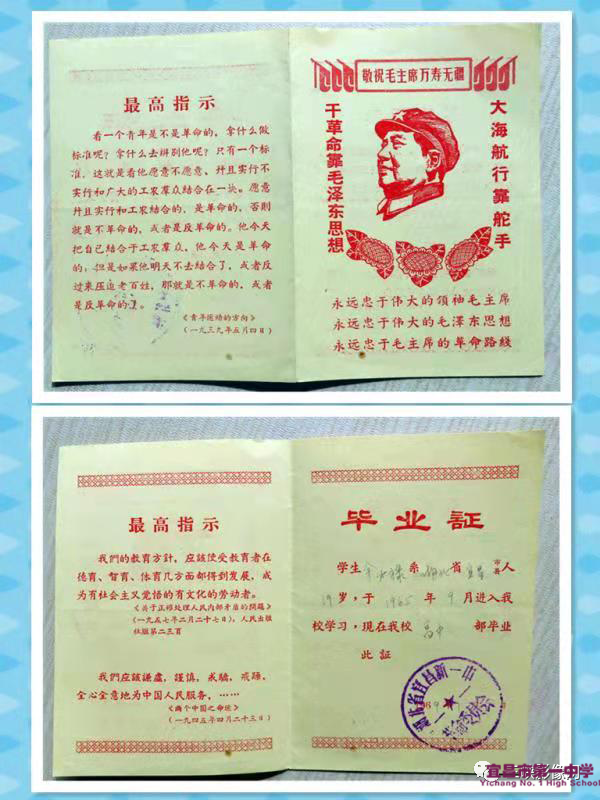 最高指示
看一个青年是不是革命的，拿什么做
标准呢？拿什么去辨别他呢？只有一个标
准，这就是看他愿意不愿意、幷且实行不
实行和广大的工农羣众结合在一块。愿意
幷且实行和工农结合的，是革命的，否则
就是不革命的，或者是反革命的。他今天
把自己结合于工农羣众，他今天是革命
的；但是如果他明天不去结合了，或者反
过来压迫老百姓，那就是不革命的，或者
是反革命的了。
《青年运动的方向》
（一九三九年五月四日）
敬祝毛主席万寿无疆
大海航行靠舵手
干革命靠毛泽东思想
永远忠于伟大的领袖毛主席
永远忠于伟大的毛澤东思想
永远忠于毛主席的革命路綫
最高指示
我們的教育方針，应該使受教育者在
德育、智育、体育几方面都得到发展，成
为有社会主义觉悟的有文化的劳动者。
《关于正确处理人民内部矛盾的問題》
（一九五七年二月二十七日），人民出版
社版第二三頁
我們应該謙虛，謹慎，戒驕，戒躁，
全心全意地为中国人民服务，……
《两个中国之命运》
（一九四五年四月二十三日）
毕业証
学生 系 湖北省宜昌市县人
19岁，于1965年9月进入我
校学习，現在我校高中部毕业
此証
湖北省宜昌新一中
革命委员会
宜昌市第一中学
Yichang No. 1 High School